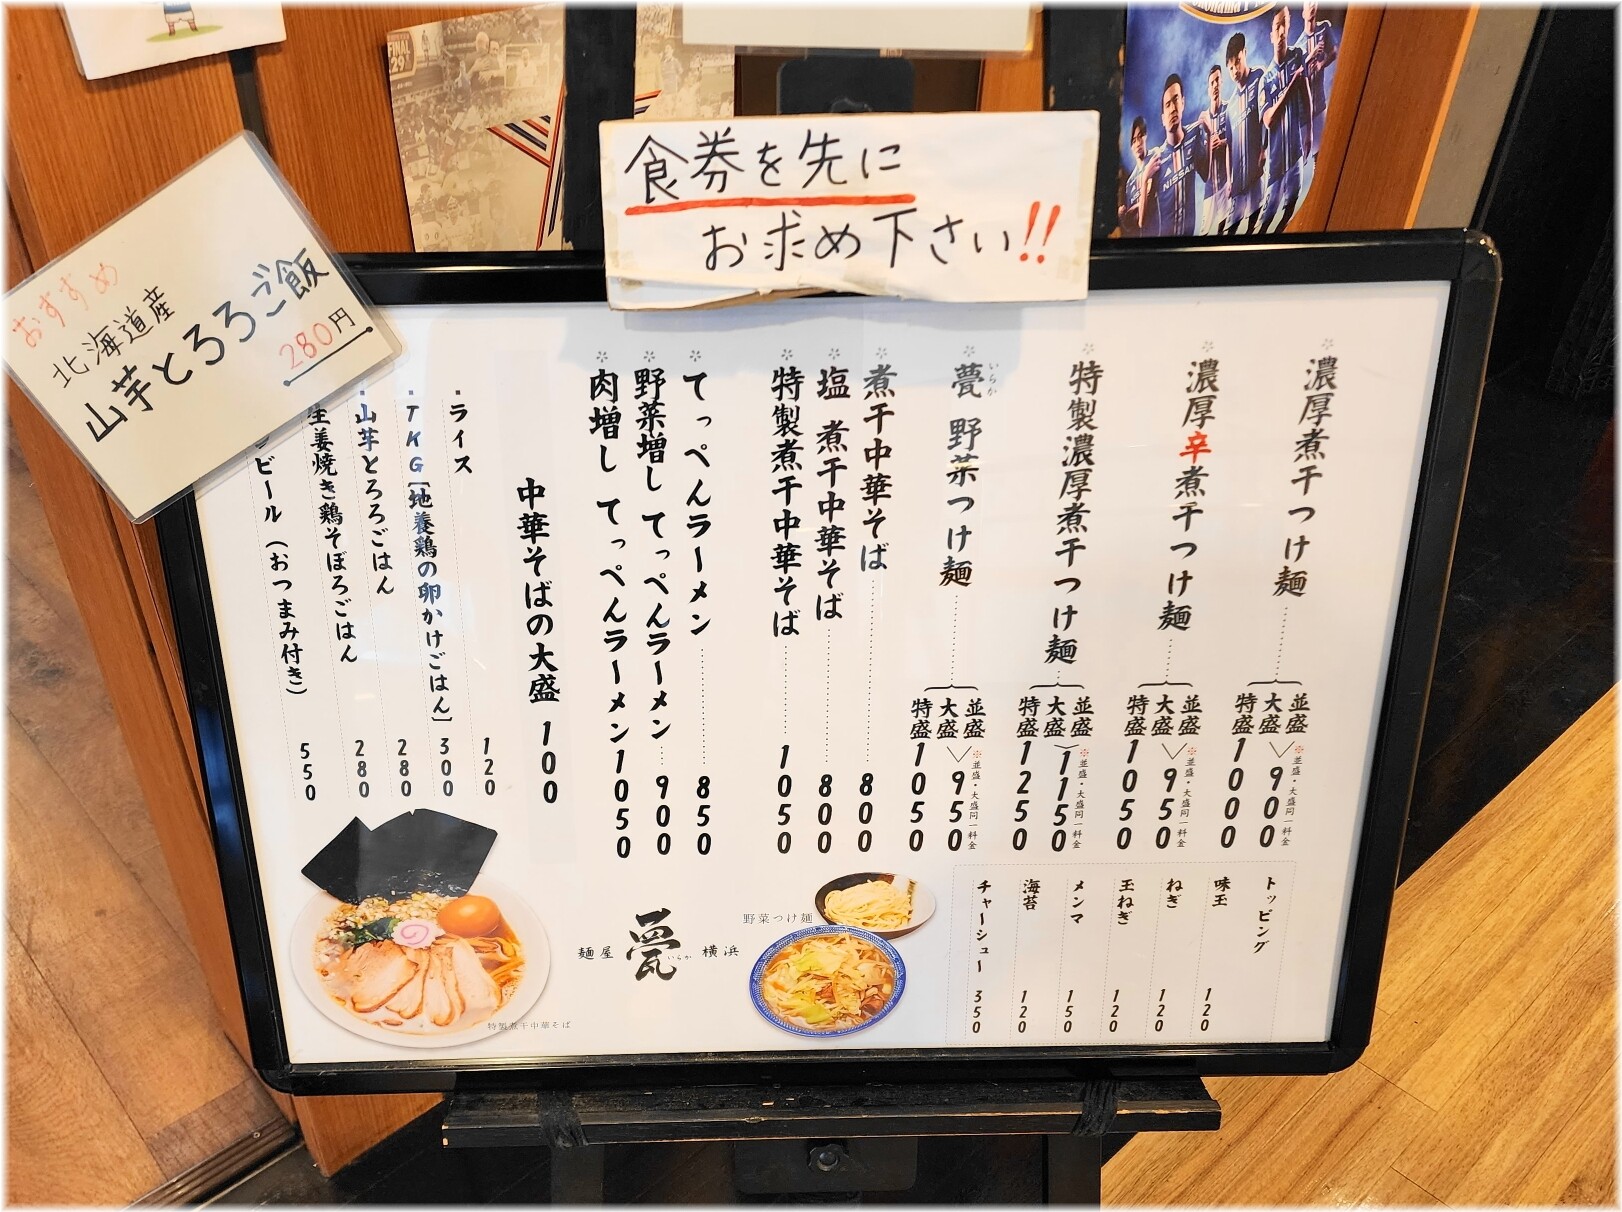 FINAL
29
食券を先に
お求め下さい!!
おすすめ
北海道産
山芋とろろご飯
280円
NISSAN
濃厚煮干つけ麺
並盛
大盛
900
※並盛・大盛同一料金
特盛
1000
濃厚辛煮干つけ麺
並盛
大盛
950
※並盛・大盛同一料金
特盛
1050
特製濃厚煮干つけ麺
並盛
大盛
1150
※並盛・大盛同一料金
特盛
1250
甍 野菜つけ麺
いらか
並盛
大盛
950
※並盛・大盛同一料金
特盛
1050
煮干中華そば 800
塩 煮干中華そば 800
特製煮干中華そば 1050
てっぺんラーメン 850
野菜増し てっぺんラーメン 900
肉増し てっぺんラーメン 1050
中華そばの大盛 100
ライス 120
TKG[地養鶏の卵かけごはん] 300
山芋とろろごはん 280
生姜焼き鶏そぼろごはん 280
ビール(おつまみ付き) 550
トッピング
味玉 120
ねぎ 120
玉ねぎ 120
メンマ 150
海苔 120
チャーシュー 350
野菜つけ麺
麺屋 甍 いらか 横浜
特製煮干中華そば